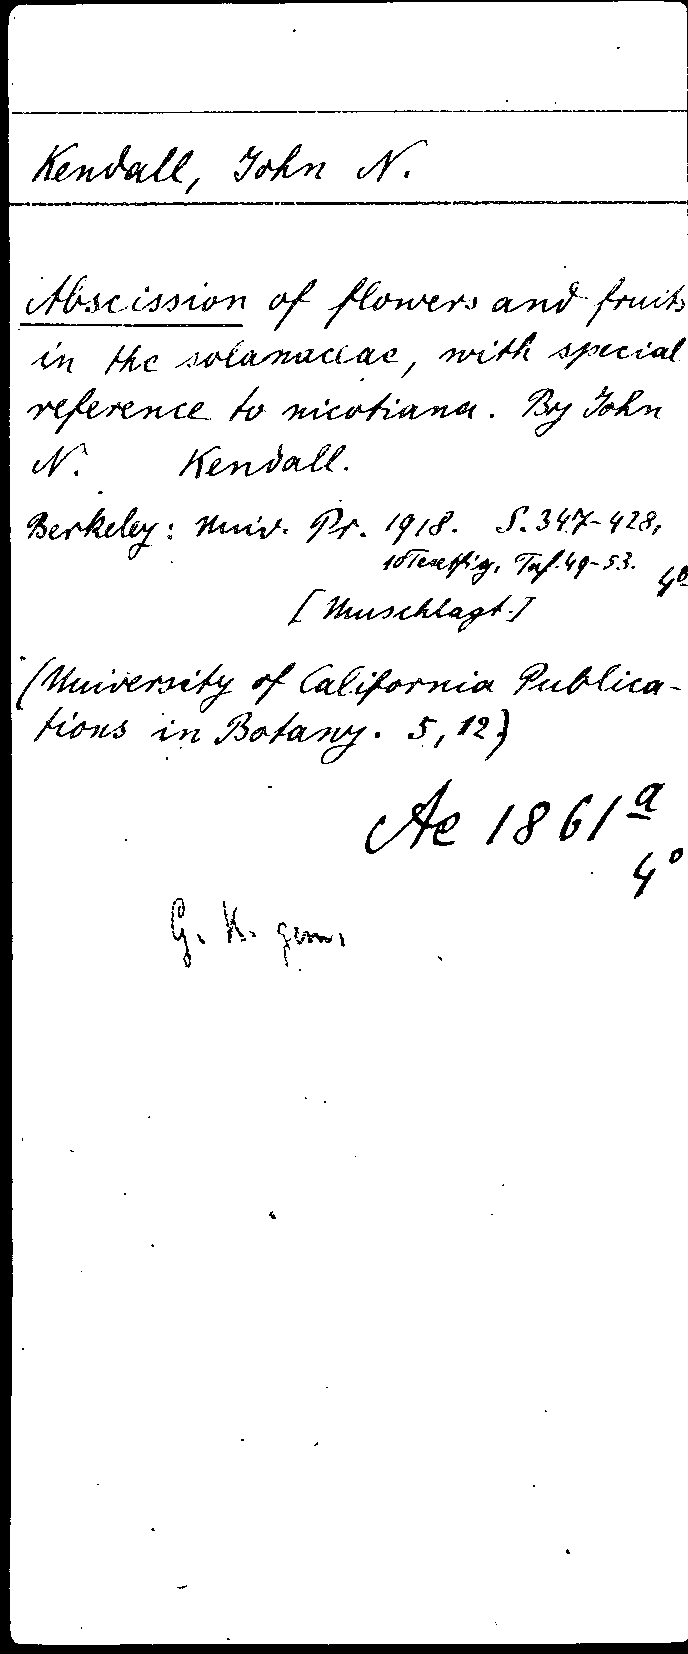 Kendall, John N.
Abscission of flowers and fruits
in the solanaceae, with special
reference to nicotiana. By John
N. Kendall.
Berkeley: Univ. Pr. 1918. S. 347-428,
10 Textfig, Taf. 49-53. 4°
[Umschlagt.]
(University of California Publica-
tions in Botany. 5, 12)
Ae 1861a
4°
G. K. gem.